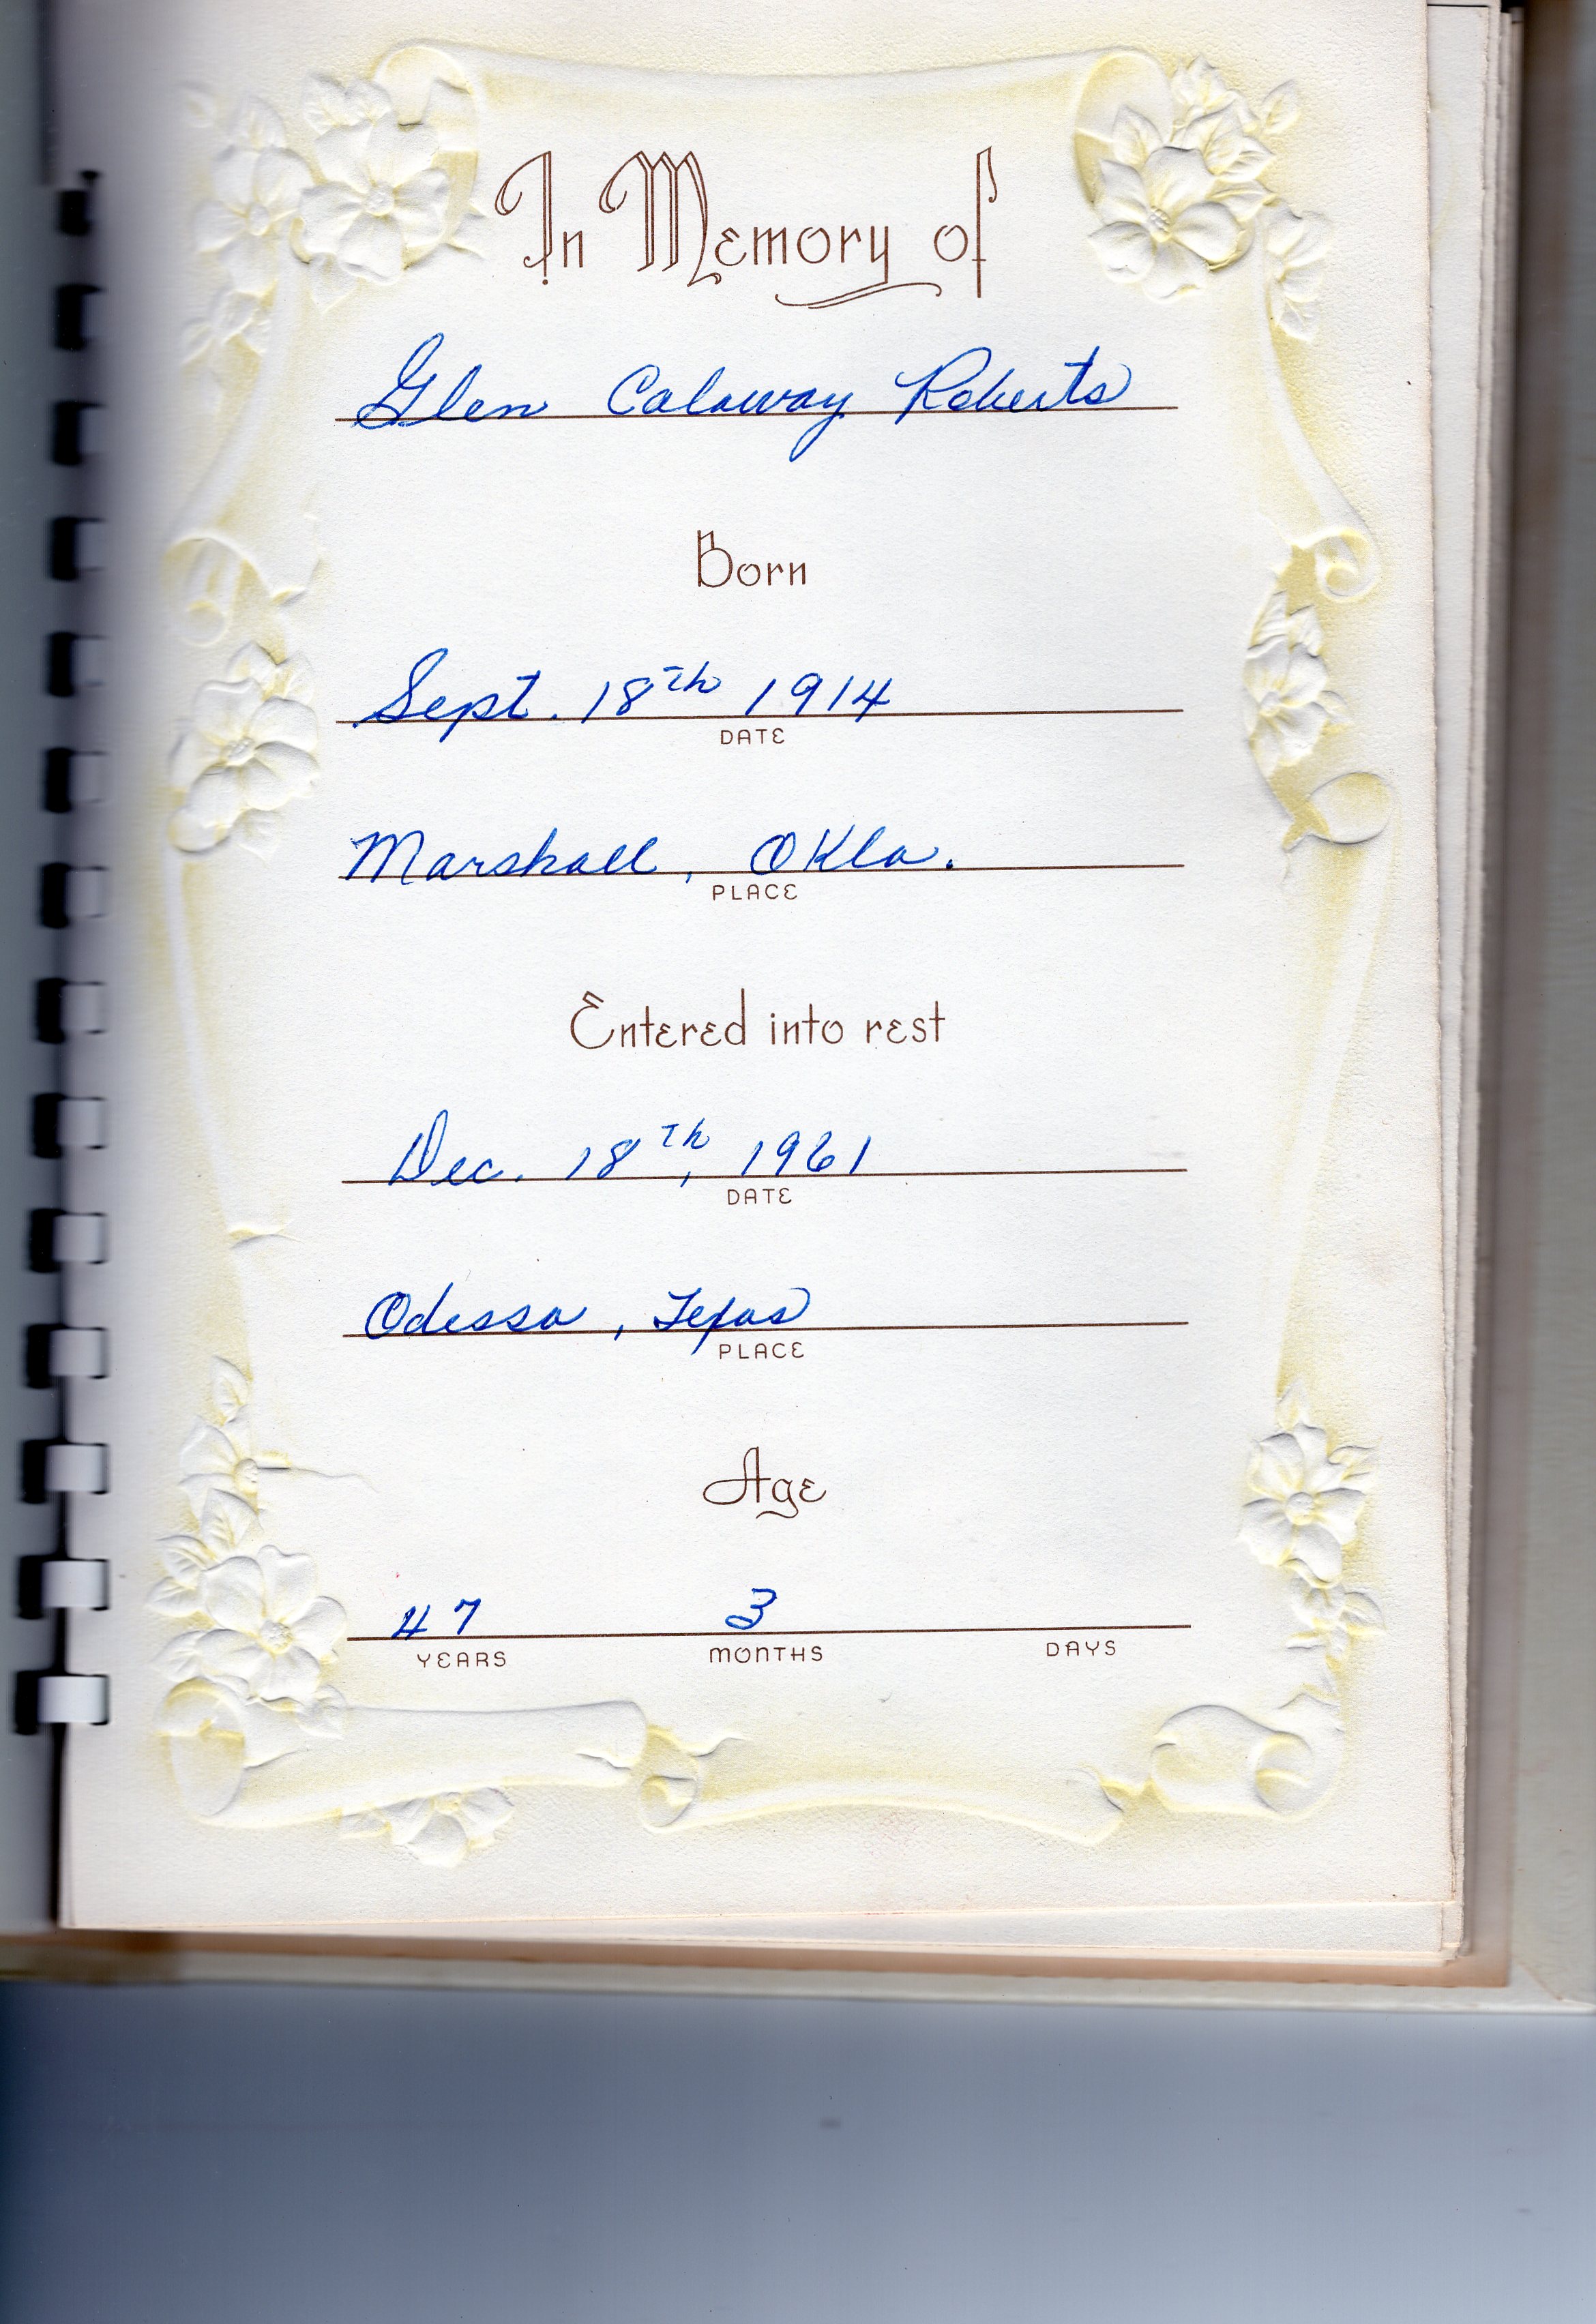 In Memory of
Glen Calaway Roberts
Born
Sept. 18th 1914
DATE
Marshall, Okla.
PLACE
Entered into rest
Dec. 18th, 1961
DATE
Odessa, Texas
PLACE
Age
47 3
YEARS MONTHS DAYS